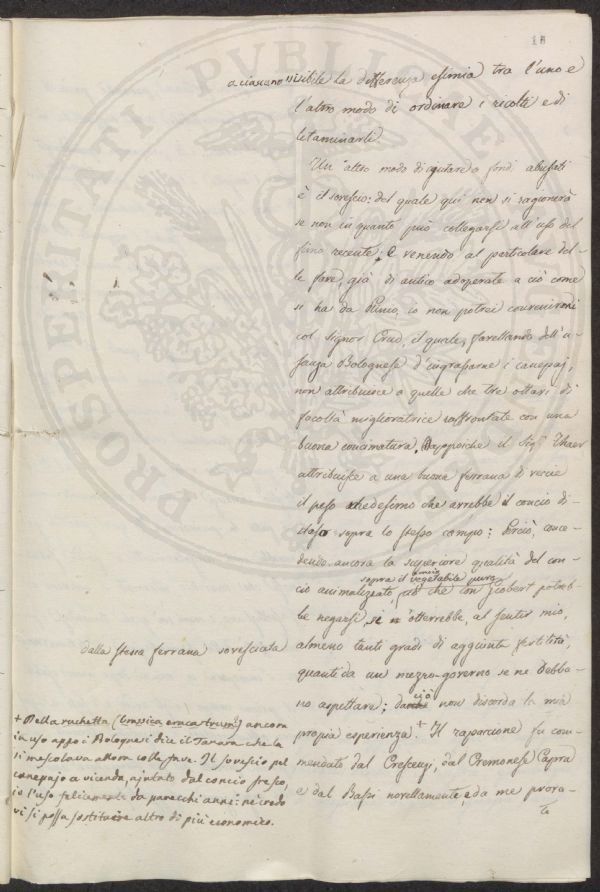 18
PROSPERITATI PVBLICAE
a ciascuno visibile la differenza esimia tra l'uno e
l'altro modo di ordinare i ricolti e di
letaminarli.
Un altro modo di ajutare a fondi abusati
è il sovescio: del quale qui non si ragionerà
se non in quanto può collegarsi all'uso del
fimo recente. E venendo al particolare del-
le fave, già di antico adoperate a ciò come
si ha da Plinio, io non potrei convenirmi
col Signor Crud, il quale, favellando dell'u-
sanza Bolognese d'ingrassarne i canepaj,
non attribuisce a quelle che tre ottavi di
facoltà miglioratrice raffrontate con una
buona concimatura. Dappoiche il Sigr Thaer
attribuisce a una buona ferrana di veccie
il peso medesimo che avrebbe il concio di-
steso sopra lo stesso campo: Perciò, conce-
dendo ancora la superiore qualità del con-
cio animalizzato, sopra il concio vegetabile puro
ciò che con Giobert potreb-
be negarsi, si n'otterrebbe, al sentir mio,
dalla stessa ferrana sovesciata
almeno tanti gradi di aggiunta fertilità,
quanti da un mezzo-governo se ne debba-
no aspettare; da ciò non discorda la mia
propria esperienza. + Il raparcione fu com-
mendato dal Crescenzj, dal Cremonese Capra
e dal Bassi novellamente, e da me prova-
to
+ Della ruchetta (brassica erucastrum) ancora
in uso appo i Bolognesi dice il Tanara che la
si mescolava allora colle fave. Il sovescio pel
canepajo a vicenda, ajutato dal concio fresco,
io l'uso felicemente da parecchi anni: nè credo
vi si possa sostituire altro di più economico.